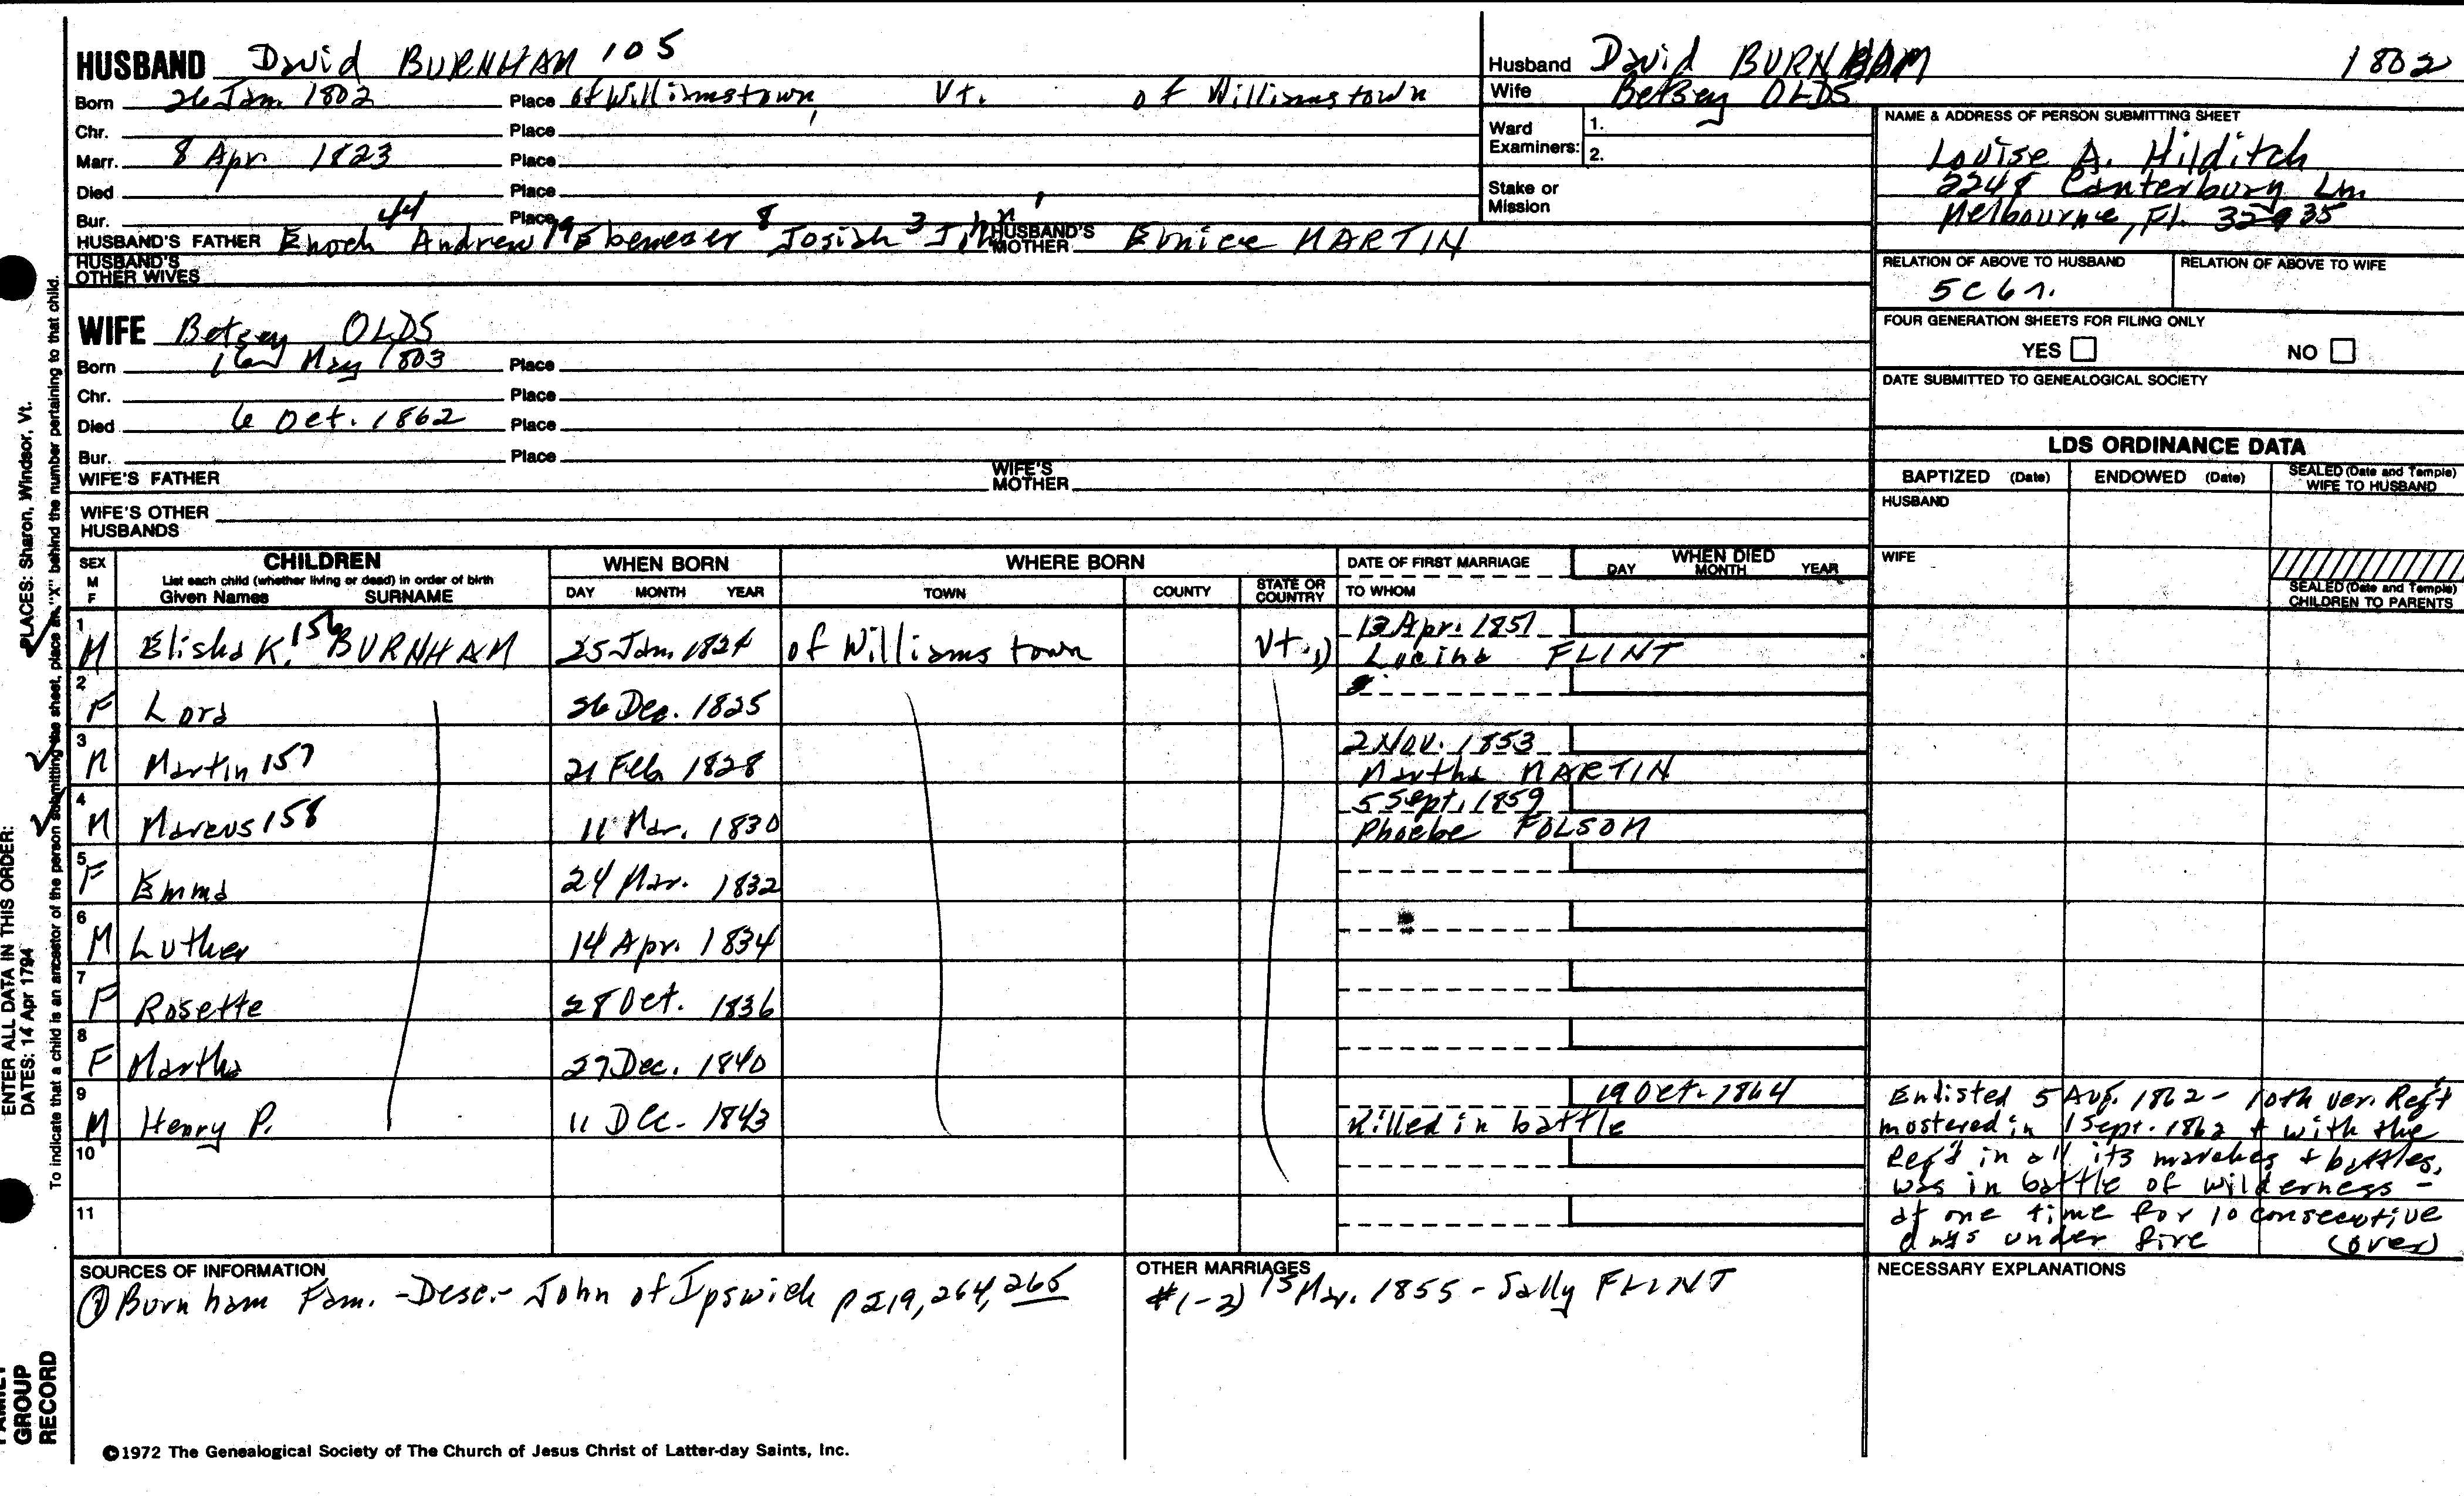 HUSBAND David BURNHAM 105
Born 26 Jan. 1802 Place of Williamstown, Vt. of Williamstown
Chr. Place
Marr. 8 Apr. 1823 Place
Died Place
Bur. Place
HUSBAND'S FATHER Enoch 44 Andrew 19 Ebenezer 8 Josiah 3 John 1 HUSBAND'S MOTHER Eunice MARTIN
HUSBAND'S OTHER WIVES
WIFE Betsey OLDS
Born 16 May 1803 Place
Chr. Place
Died 6 Oct. 1862 Place
Bur. Place
WIFE'S FATHER WIFE'S MOTHER
WIFE'S OTHER HUSBANDS
Husband David BURNHAM 1802
Wife Betsey OLDS
Ward Examiners: 1.
2.
Stake or Mission
NAME & ADDRESS OF PERSON SUBMITTING SHEET
Louise A. Hilditch
2248 Canterbury Ln.
Melbourne, Fl. 32935
RELATION OF ABOVE TO HUSBAND RELATION OF ABOVE TO WIFE
5C6r.
FOUR GENERATION SHEETS FOR FILING ONLY
YES NO
DATE SUBMITTED TO GENEALOGICAL SOCIETY
LDS ORDINANCE DATA
BAPTIZED (Date) ENDOWED (Date) SEALED (Date and Temple) WIFE TO HUSBAND
HUSBAND
WIFE
SEALED (Date and Temple) CHILDREN TO PARENTS
SEX M F CHILDREN WHEN BORN WHERE BORN DATE OF FIRST MARRIAGE WHEN DIED
List each child (whether living or dead) in order of birth
Given Names SURNAME DAY MONTH YEAR TOWN COUNTY STATE OR COUNTRY TO WHOM DAY MONTH YEAR
1 M Elisha K. 156 BURNHAM 25 Jan. 1824 of Williamstown Vt. 1) 13 Apr. 1851
Lucina FLINT
2 F Lora 26 Dec. 1825
3 M Martin 157 21 Feb. 1828 2 Nov. 1853
Martha MARTIN
4 M Marcus 158 11 Mar. 1830 5 Sept. 1859
Phoebe FOLSOM
5 F Emma 24 Mar. 1832
6 M Luther 14 Apr. 1834
7 F Rosette 28 Oct. 1836
8 F Martha 27 Dec. 1840
9 M Henry P. 11 Dec. 1843 19 Oct. 1864
Killed in battle
10
11
Enlisted 5 Aug. 1862 - 10th Ver. Reg't
mostered in 1 Sept. 1862 + with the
Reg't in all its marches + battles,
was in battle of wilderness -
at one time for 10 consecutive
days under fire (over)
SOURCES OF INFORMATION
① Burnham Fam. - Desc. - John of Ipswich p 219, 264, 265
OTHER MARRIAGES
#1-2) 13 Mar. 1855 - Sally FLINT
NECESSARY EXPLANATIONS
©1972 The Genealogical Society of The Church of Jesus Christ of Latter-day Saints, Inc.
ENTER ALL DATA IN THIS ORDER:
DATES: 14 Apr 1794
PLACES: Sharon, Windsor, Vt.
To indicate that a child is an ancestor of the person submitting the sheet, place an "X" behind the number pertaining to that child.
FAMILY GROUP RECORD